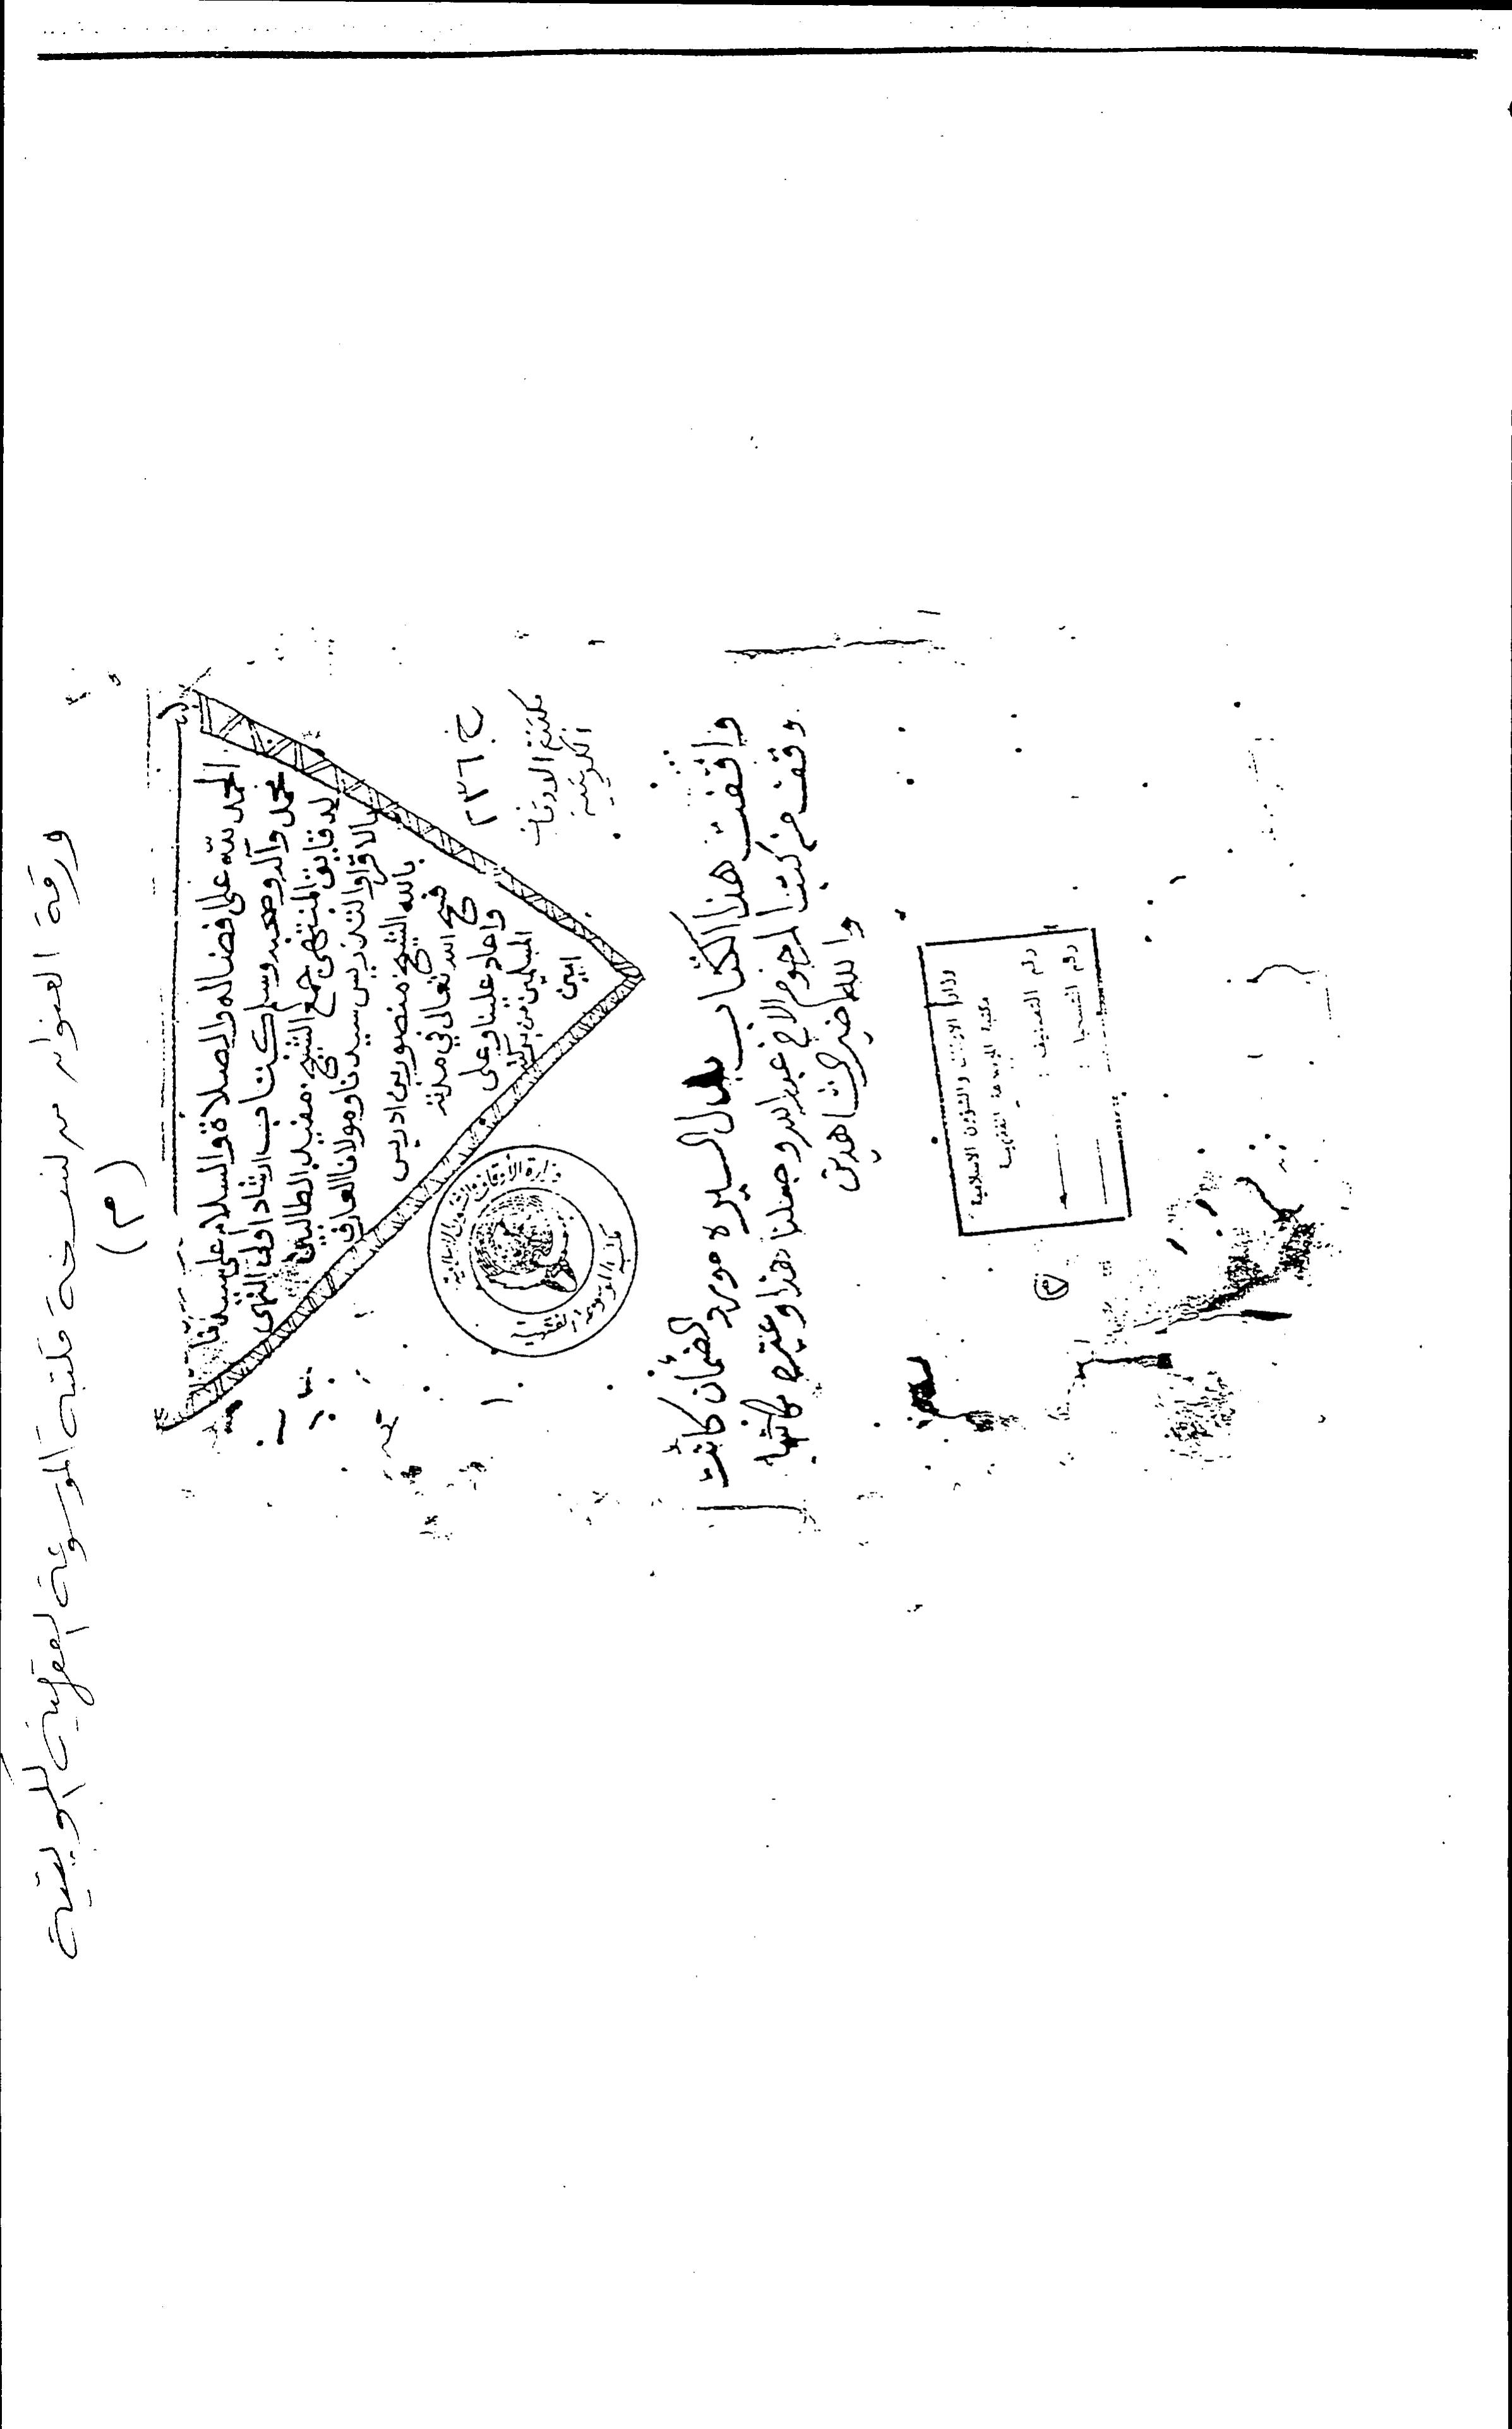 ورقة العنوان من نسخة مكتبة الموسوعة الفقهية الكويتية
(م)
الحمد لله على افضاله والصلاة والسلام على سيدنا
محمد وآله وصحبه وسلم كتاب ارشاد أولى النهى
لدقايق المنتهى جمع الشيخ مفيد الطالبين
بالاقرا والتدريس سيدنا ومولانا العارف
بالله الشيخ منصور بن ادريس
فسح الله تعالى في مدته
واعاد علينا وعلى
المسلمين من بركته
امين
خ ٢٣٦
مكتبة الاوقاف
الكويتية
وزارة الأوقاف والشئون الاسلامية
مكتبة الموسوعة الفقهية
واقفت هذا الكتاب بدال السيره مورد الضمأن كانت
وقف من كتب المرحوم الاخ عبدالله وجعلنا هذا وغيره مكانها
والله خير الشاهدين
وزارة الاوقاف والشؤون الاسلامية
مكتبة الموسوعة الفقهية
رقم التصنيف :
رقم التسجيل :
م